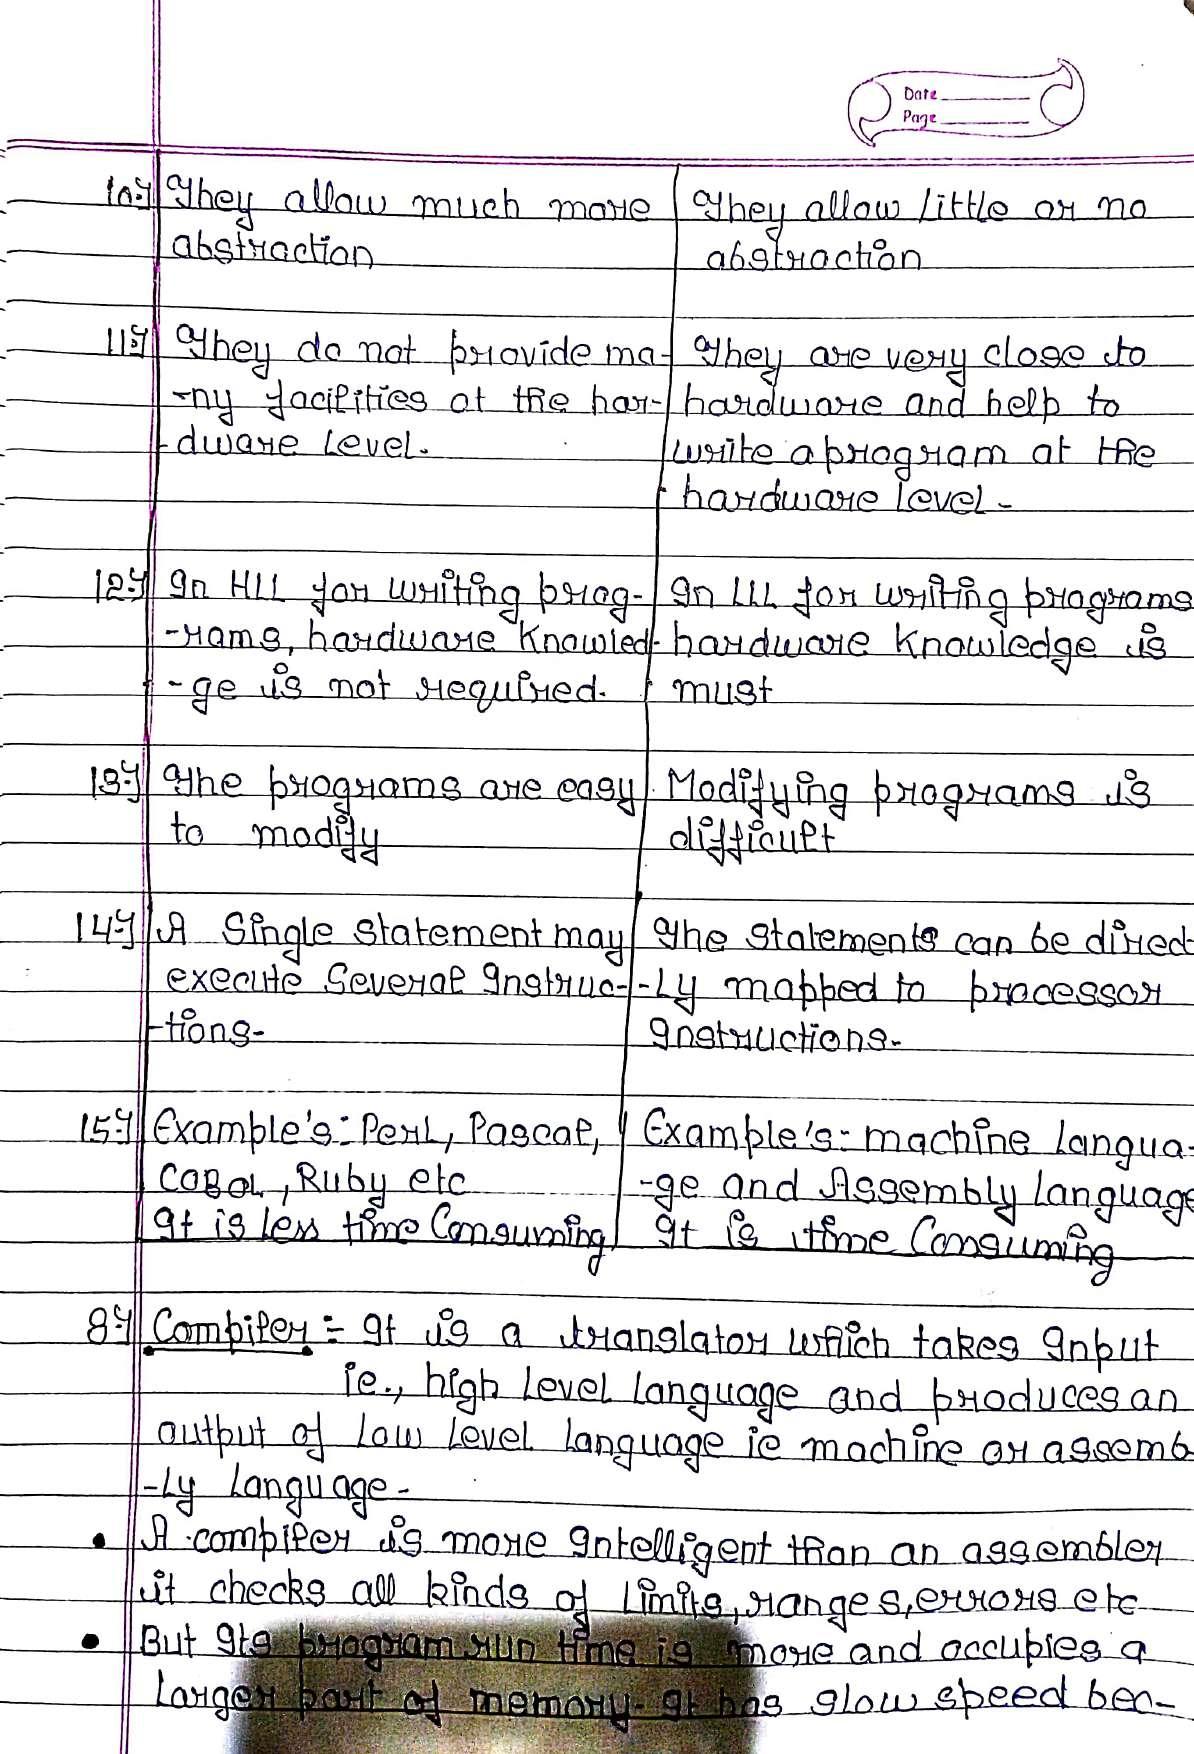 Date
Page
10.) They allow much more
abstraction
They allow little or no
abstraction
11.) They do not provide ma-
-ny facilities at the har-
-dware Level.
They are very close to
hardware and help to
write a program at the
hardware level.
12.) In HLL for writing prog-
-rams, hardware Knowled-
-ge is not required.
In LLL for writing programs
hardware Knowledge is
must
13.) The programs are easy
to modify
Modifying programs is
difficult
14.) A Single statement may
execute Several Instruc-
-tions.
The statements can be direct
-Ly mapped to processor
Instructions.
15.) Example's:- Perl, Pascal,
COBOL, Ruby etc
It is less time Consuming
Example's:- machine Langua-
-ge and Assembly language
It is time Consuming
8.) Compiler :- It is a translator which takes Input
ie., high Level Language and produces an
output of Low Level Language ie machine or assemb
-Ly Language.
• A compiler is more Intelligent than an assembler
it checks all kinds of Limits, ranges, errors etc
• But Its program run time is more and occupies a
Larger part of memory. It has slow speed bec-